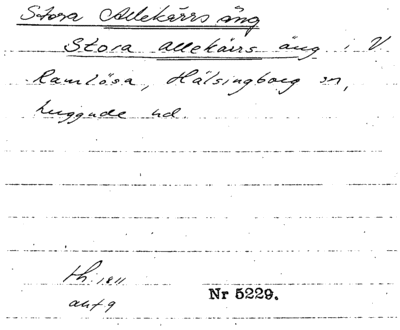 Stora Allekärrs äng
Stora Allekärrs äng i V.
Ramlösa, Hälsingborg sn,
Luggude hd.
th. 1811
akt 9
Nr 5229.